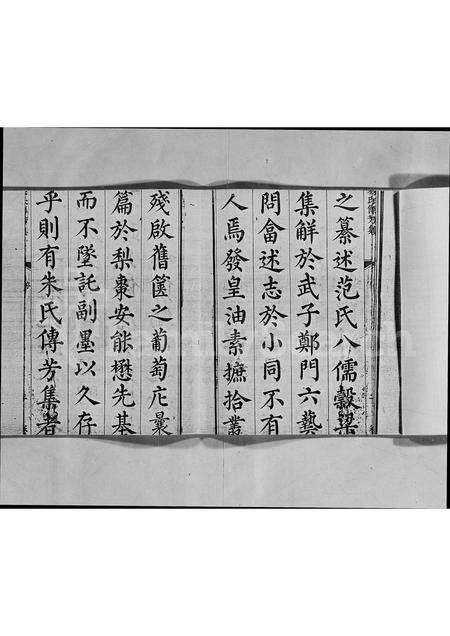 之纂述范氏八儒縠梁
集解於武子鄭門六藝
問畣述志於小同不有
人焉發皇油素摭拾叢
殘啟舊篋之葡萄庀彚
篇於梨棗安能懋先基
而不墜託副墨以久存
乎則有朱氏傳芳集者